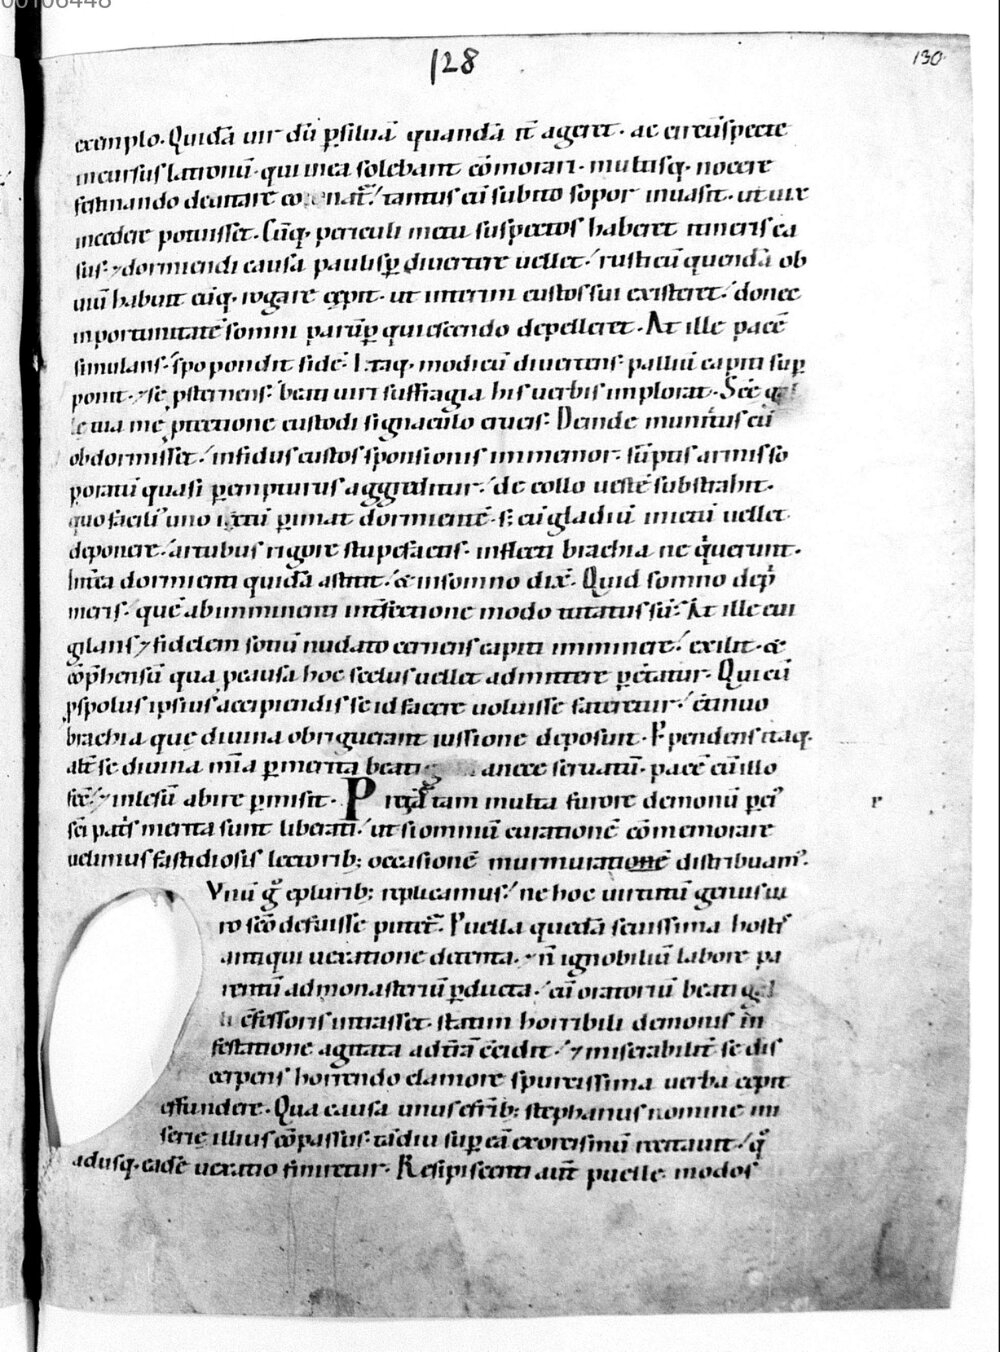 00106448
128
130
exemplo. Quidā uir dū ꝑsiluā quandā it̄ ageret. ac circūspecte
incursus latronū. qui inea solebant cōmorari. multisq. nocere
festinando deuitare conat̄. tantus eū subito sopor inuasit. ut uix
incedere potuisset. Cūq. periculi metu suspectos haberet itineris ca
sus. ⁊ dormiendi causa paulisꝑ diuertere uellet. rusticū quendā ob
uiū habuit eūq. rogare cępit. ut interim custos sui existeret. donec
inportunitatē somni parūꝑ quiescendo depelleret. At ille pacē
simulans. spopondit fidē. Itaq. modicū diuertens. palliū capiti suꝑ
ponit. ⁊ se ꝓsternens. beati uiri suffragia his uerbis implorat. Scē
le tua me ꝓtectione custodi signaculo crucis. Deinde munitus cū
obdormisset. infidus custos sponsionis inmemor. sūptis armis so
poratū quasi ꝑempturus aggreditur. de collo uestē substrahit.
quo facili᾽ uno ictū ꝑimat dormientē. s; cū gladiū inictū uellet
deponere. artubus rigore stupefactis. inflecti brachia ne q̇uerunt.
Int̄ea dormienti quidā astitit. & insomno dix̄. Quid somno dep̄
meris. quē abimminenti int̄fectione modo tutatus sū. At ille eui
gilans ⁊ fidelem sotiū nudato cernens capiti imminere. exilit. &
cōp̄hensū qua ꝓ causa hoc scelus uellet admittere ꝑc̄tatur. Qui cū
ꝓ spolus ipsius accipiendis se id facere uoluisse fateretur. c̄tinuo
brachia quę diuina obriguerant iussione deposuit. P̄pendens itaq.
alt̄ se diuina mīa ꝑmerita beati ancte seruatū. pacē cū illo
fec̄. ⁊ inlesū abire ꝑmisit. P ret̄ea tam multa furore demonū ꝑei᾽
sc̄i pat̄s merita sunt liberati. ut si omniū curationē cōmemorare
uelimus fastidiosis lectorib; occasionē murmurationē distribuam᾽.
Vnū g̊ epluribꝫ replicamus. ne hoc uirtutū genus ui
ro sc̄o defuisse putet̄. Puella quędā seuissima hostis
antiqui uexatione detenta. ⁊ n̄ ignobiliū labore pa
rentū ad monasteriū ꝑducta. cū oratoriū beati
c̄fessoris intrasset. statim horribili demonis in
festatione agitata adt̄rā c̄cidit. ⁊ miserabilit̄ se dis
cerpens horrendo clamore spurcissima uerba cępit
effundere. Qua causa unus ex fr̄ib; stephanus nomine mi
serię illius cōpassus. tādiu suꝑ eā exorcismū recitauit. q̊
adusq. eadē uexatio finiretur. Resipiscenti aut̄ puellę modos
r